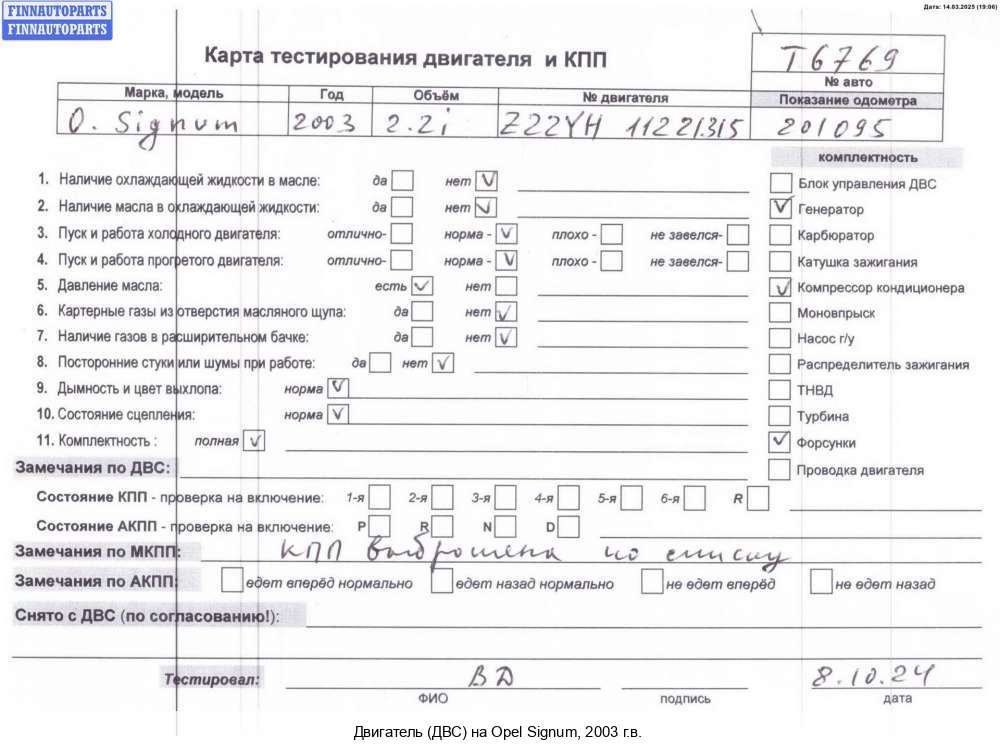 FINNAUTOPARTS
FINNAUTOPARTS
Дата: 14.03.2025 (19:06)
Карта тестирования двигателя и КПП
T6769
№ авто
Марка, модель Год Объём № двигателя Показание одометра
O. Signum 2003 2.2i Z22YH 11221315 201095
комплектность
1. Наличие охлаждающей жидкости в масле: да нет Блок управления ДВС
2. Наличие масла в охлаждающей жидкости: да нет Генератор
3. Пуск и работа холодного двигателя: отлично- норма - плохо - не завелся- Карбюратор
4. Пуск и работа прогретого двигателя: отлично- норма - плохо - не завелся- Катушка зажигания
5. Давление масла: есть нет Компрессор кондиционера
6. Картерные газы из отверстия масляного щупа: да нет Моновпрыск
7. Наличие газов в расширительном бачке: да нет Насос г/у
8. Посторонние стуки или шумы при работе: да нет Распределитель зажигания
9. Дымность и цвет выхлопа: норма ТНВД
10. Состояние сцепления: норма Турбина
11. Комплектность : полная Форсунки
Замечания по ДВС: Проводка двигателя
Состояние КПП - проверка на включение: 1-я 2-я 3-я 4-я 5-я 6-я R
Состояние АКПП - проверка на включение: P R N D
Замечания по МКПП: КПП выброшена по списку
Замечания по АКПП: едет вперёд нормально едет назад нормально не едет вперёд не едет назад
Снято с ДВС (по согласованию!):
Тестировал: ВД 8.10.24
ФИО подпись дата
Двигатель (ДВС) на Opel Signum, 2003 г.в.